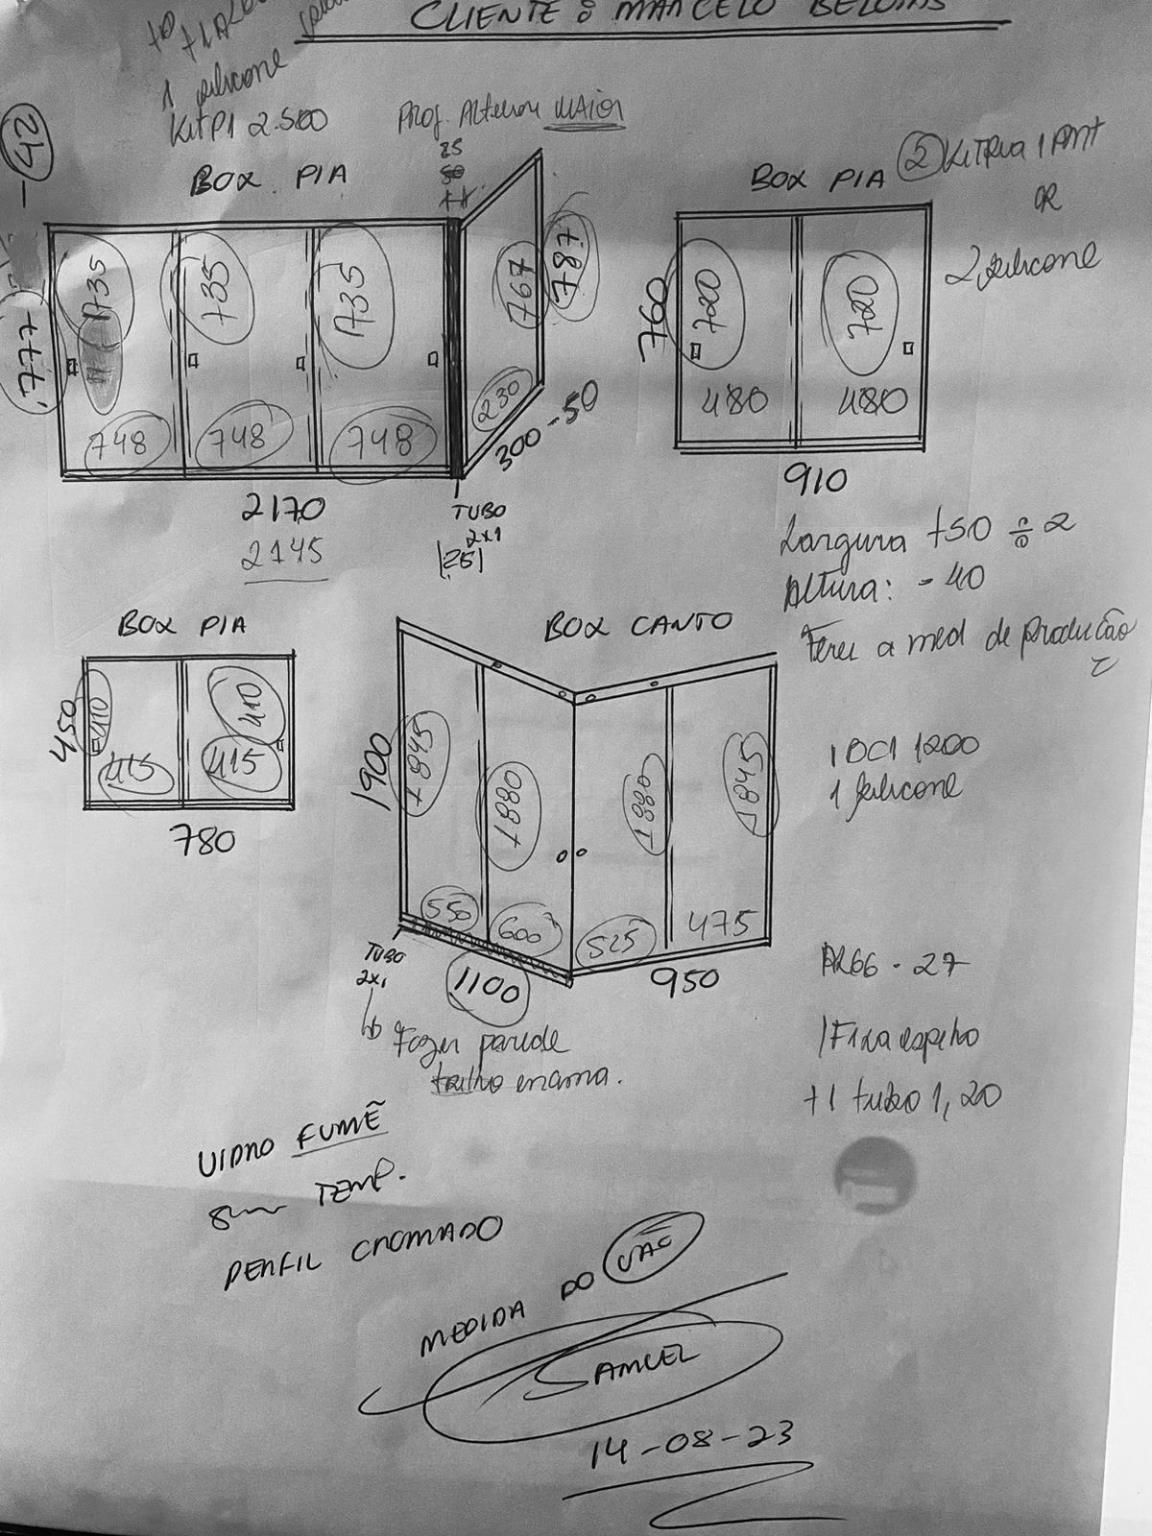 CLIENTE: MARCELO
1 silicone
Kit P1 2.500
Prof. Alteron MAIOR
BOX PIA
25
50
42
777
735
735
735
767
787
748
748
748
230
300-50
2170
2145
TUBO
2x1
|25|
BOX PIA
② Kit Pia 1 PMT
OR
2 silicone
760
720
720
480
480
910
Largura +50 ÷ 2
Altura: - 40
Terei a med de produção
BOX PIA
450
410
410
415
415
780
BOX CANTO
1900
1845
1880
1880
1845
550
600
525
475
TUBO
2x1
1100
950
Fazer parede
trilho encima.
1 BC1 1200
1 silicone
AL66 - 27
1 Fixa espelho
+1 tubo 1,20
VIDRO FUMÊ
8mm TEMP.
PERFIL CROMADO
MEDIDA DO VÃO
SAMUEL
14-08-23